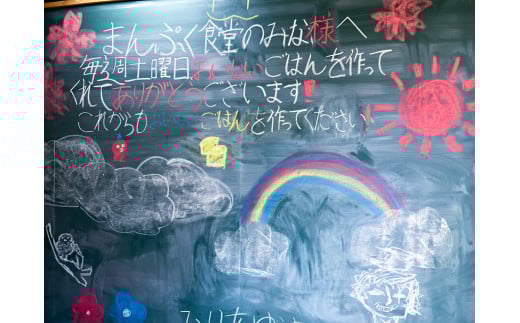 まんぷく食堂のみな様へ
毎週土曜日おいしいごはんを作って
くれてありがとうございます!
これからもおいしいごはんを作ってください